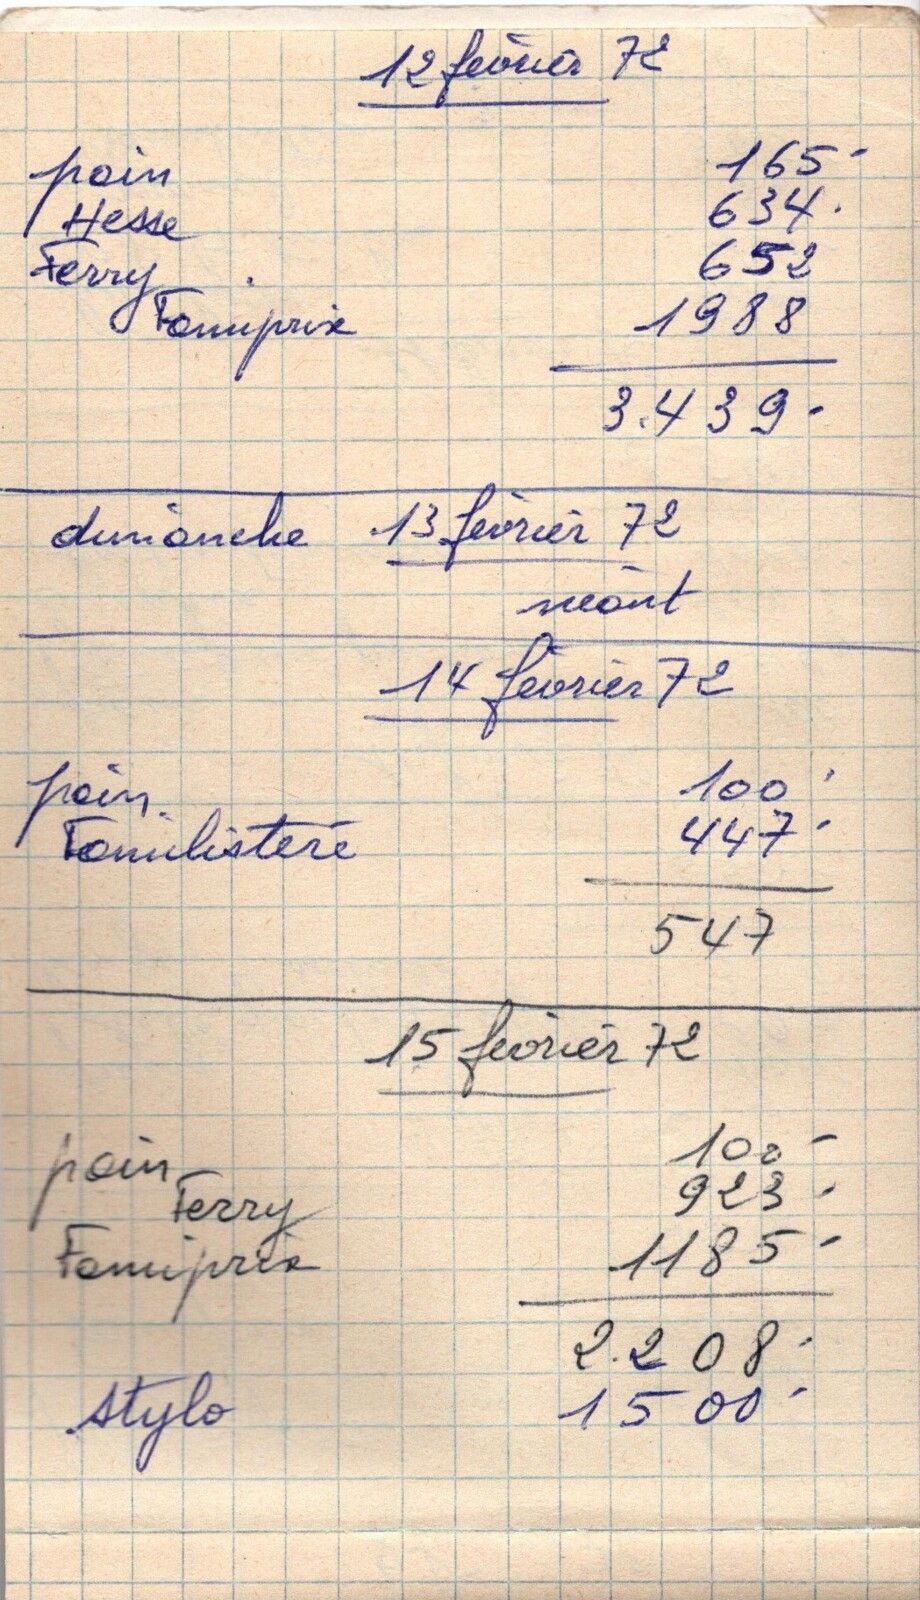 12 février 72
pain 165-
Hesse 634.
Ferry 652
Famiprix 1988
3.439-
dimanche 13 février 72
néant
14 février 72
pain 100'
Familistère 447-
547
15 février 72
pain 100-
Ferry 923.
Famiprix 1185-
2.208-
stylo 1500-